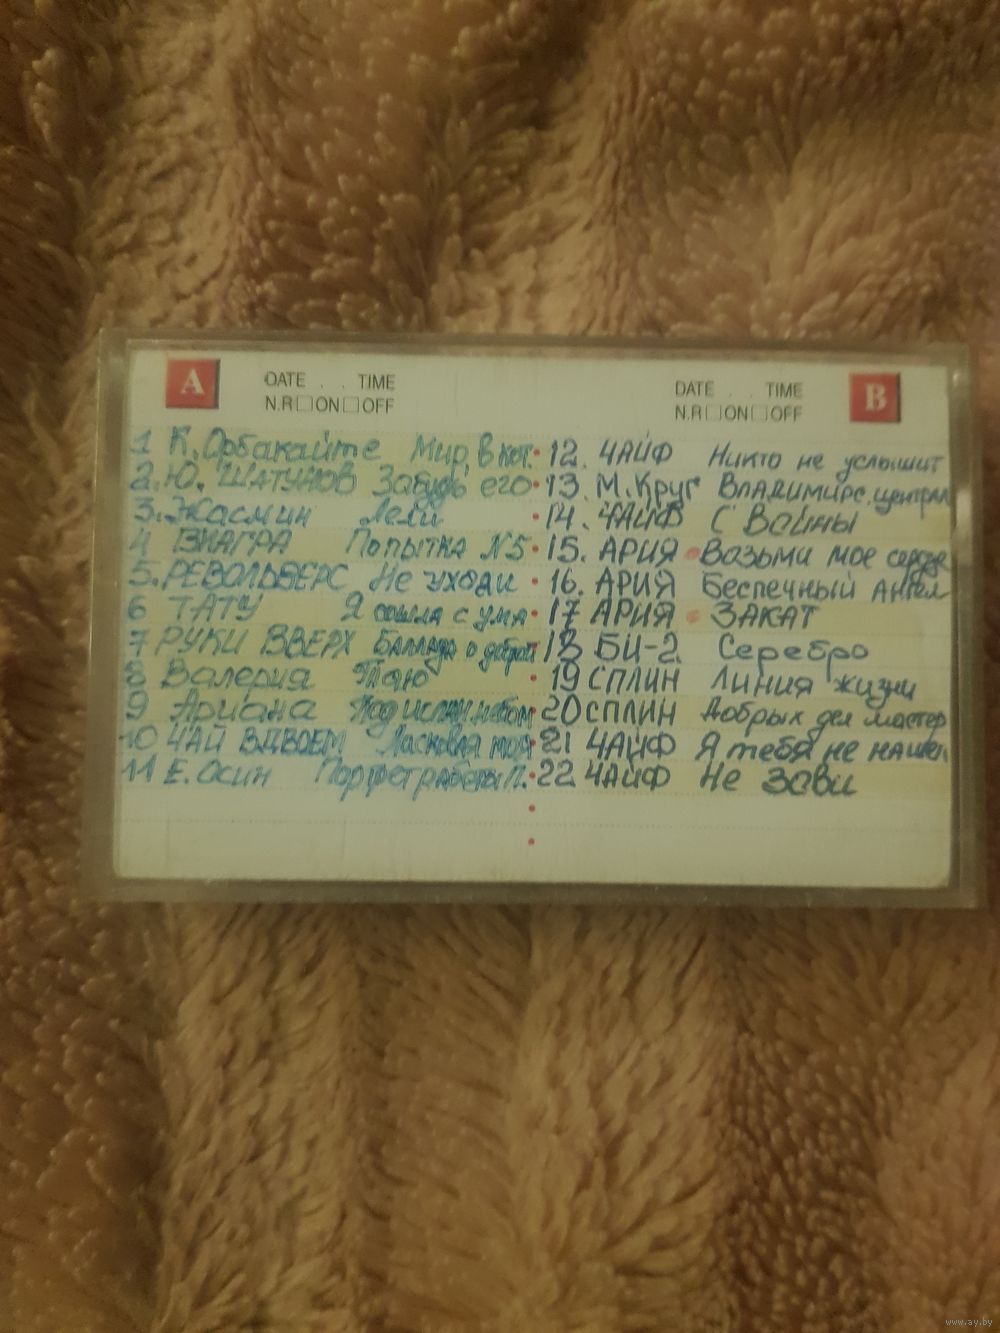 A DATE . . TIME
N.R□ON□OFF
DATE . . TIME B
N.R□ON□OFF
1 К. Орбакайте Мир, в кот.
2. Ю. ШАТУНОВ Забудь его
3. Жасмин Лели
4 ВИАГРА Попытка №5
5. РЕВОЛЬВЕРС Не уходи
6 ТАТУ Я сошла с ума
7 РУКИ ВВЕРХ Баллада о доброй
8 Валерия Таю
9 Ариана Под испан небом
10 ЧАЙ ВДВОЕМ Ласковая моя
11 Е. Осин Портрет работы П.
12. ЧАЙФ Никто не услышит
13. М. Круг Владимирс. централ
14. ЧАЙФ С Войны
15. АРИЯ Возьми мое сердце
16. АРИЯ Беспечный Ангел
17 АРИЯ ЗАКАТ
18 БИ-2 Серебро
19 СПЛИН Линия жизни
20 СПЛИН Добрых дел мастер
21 ЧАЙФ Я тебя не нашел
22 ЧАЙФ Не Зови
www.ay.by